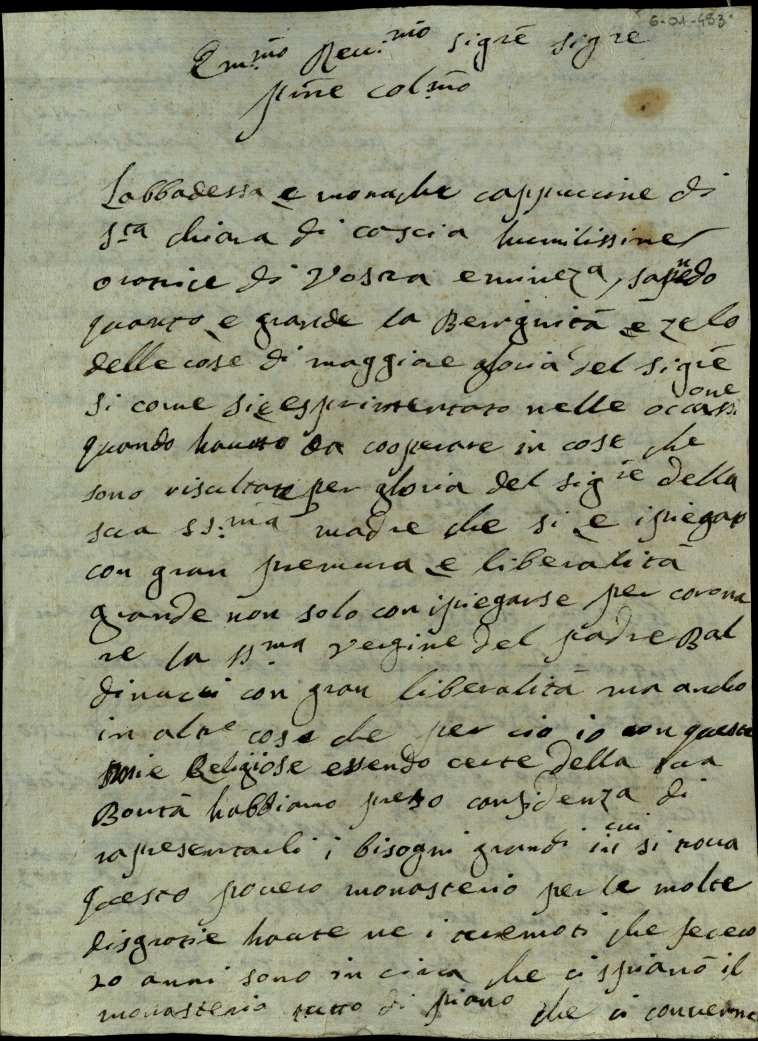 6-01-453
Em:mo Reu:mo sigre sigre
prne colmo
Labbadessa e monache cappuccine di
sta chiara di cascia humilissime
oratrice di Vostra emineza, sapendo
quanto è grande la Benignità è zelo
delle cose di maggiore gloria del sigre
si come si è esprimentato nelle occassione
quando hauto da cooperare in cose che
sono risultate per gloria del sigre della
sua ss:ma madre che si è ipiegato
con gran premura e liberalità
grande non solo con ipiegarse per corona
re la ssma vergine del padre Bal
dinucci con gran liberalità ma ancho
in altre cose che per ciò io con queste
mie Religiose essendo certe della sua
Bontà habbiamo preso confidenza di
rapresentarli i bisogni grandi in cui si troua
questo pouero monasterio per le molte
disgratie haute ne i teremoti che fecero
20 anni sono in circa che ci spianò il
monasterio tutto di piano che ci conuenne